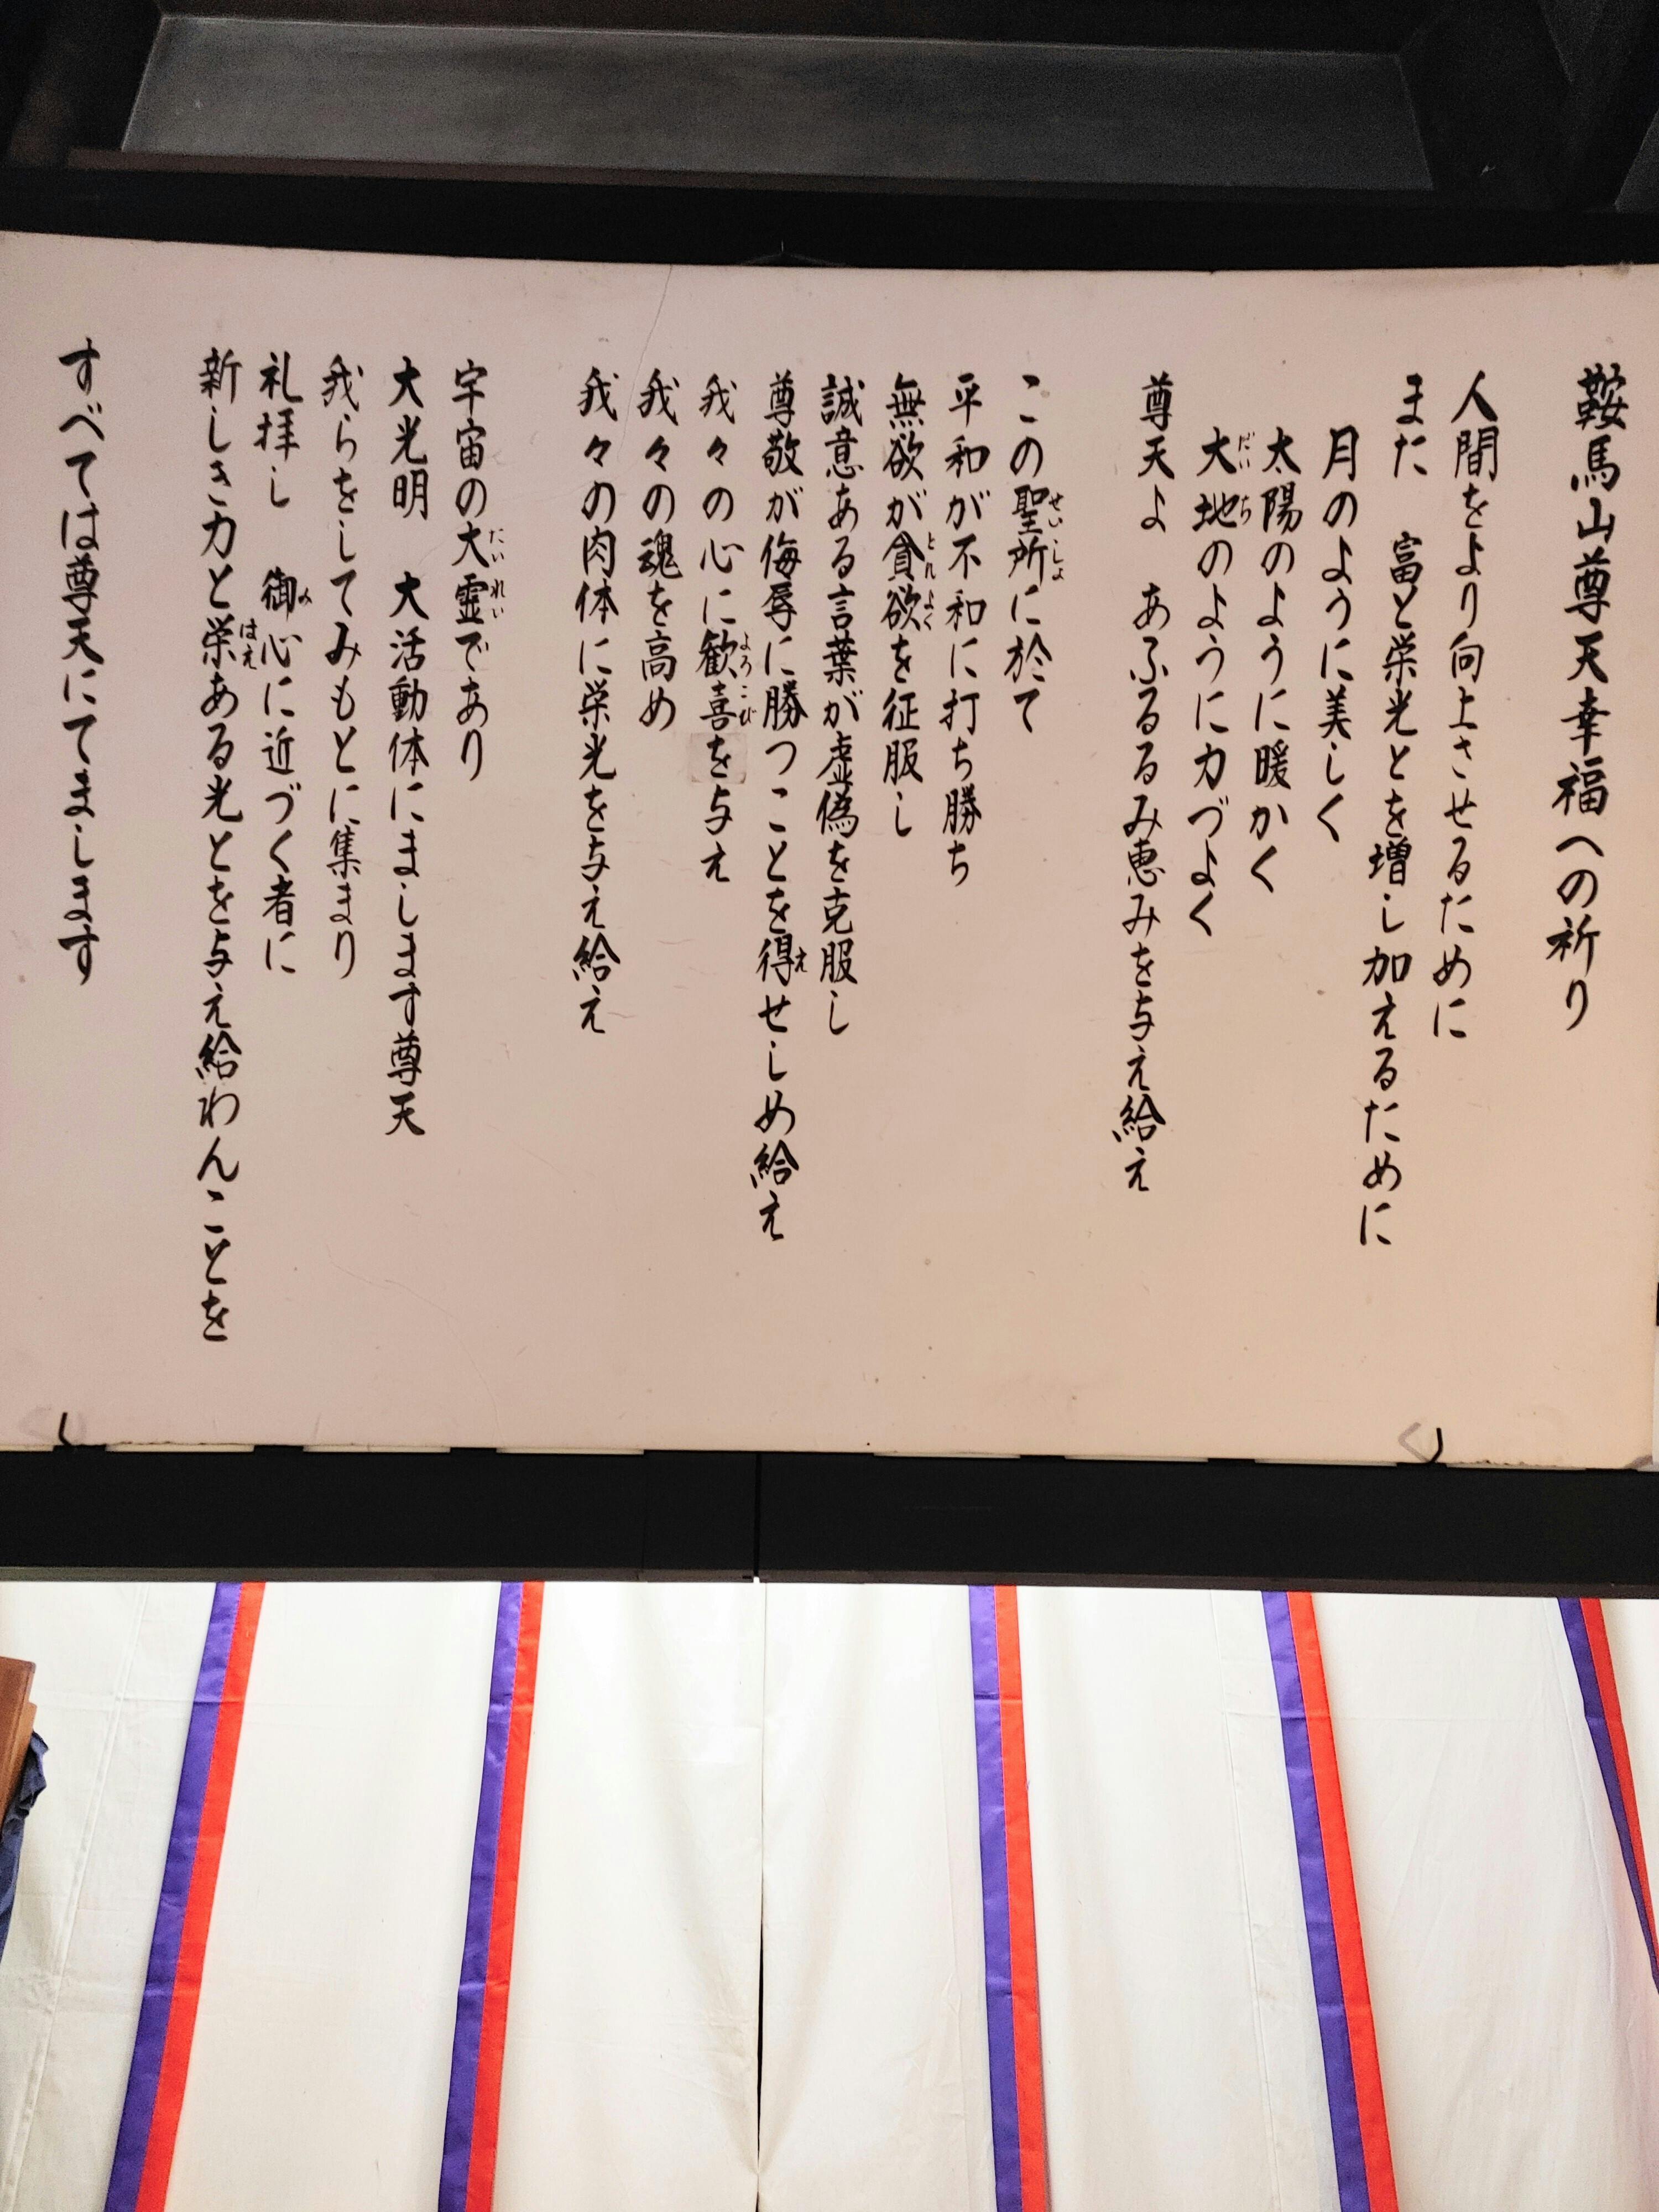 鞍馬山尊天幸福への祈り
人間をより向上させるために
また　富と栄光とを増し加えるために
月のように美しく
太陽のように暖かく
大地のように力づよく
だいち
尊天よ　あふるるみ恵みを与え給え
この聖所に於て
せいしょ
平和が不和に打ち勝ち
無欲が貪欲を征服し
とんよく
誠意ある言葉が虚偽を克服し
尊敬が侮辱に勝つことを得せしめ給え
え
我々の心に歓喜を与え
よろこび
我々の魂を高め
我々の肉体に栄光を与え給え
宇宙の大霊であり
だいれい
大光明　大活動体にまします尊天
我らをしてみもとに集まり
礼拝し　御心に近づく者に
み
新しき力と栄ある光とを与え給わんことを
はえ
すべては尊天にてまします